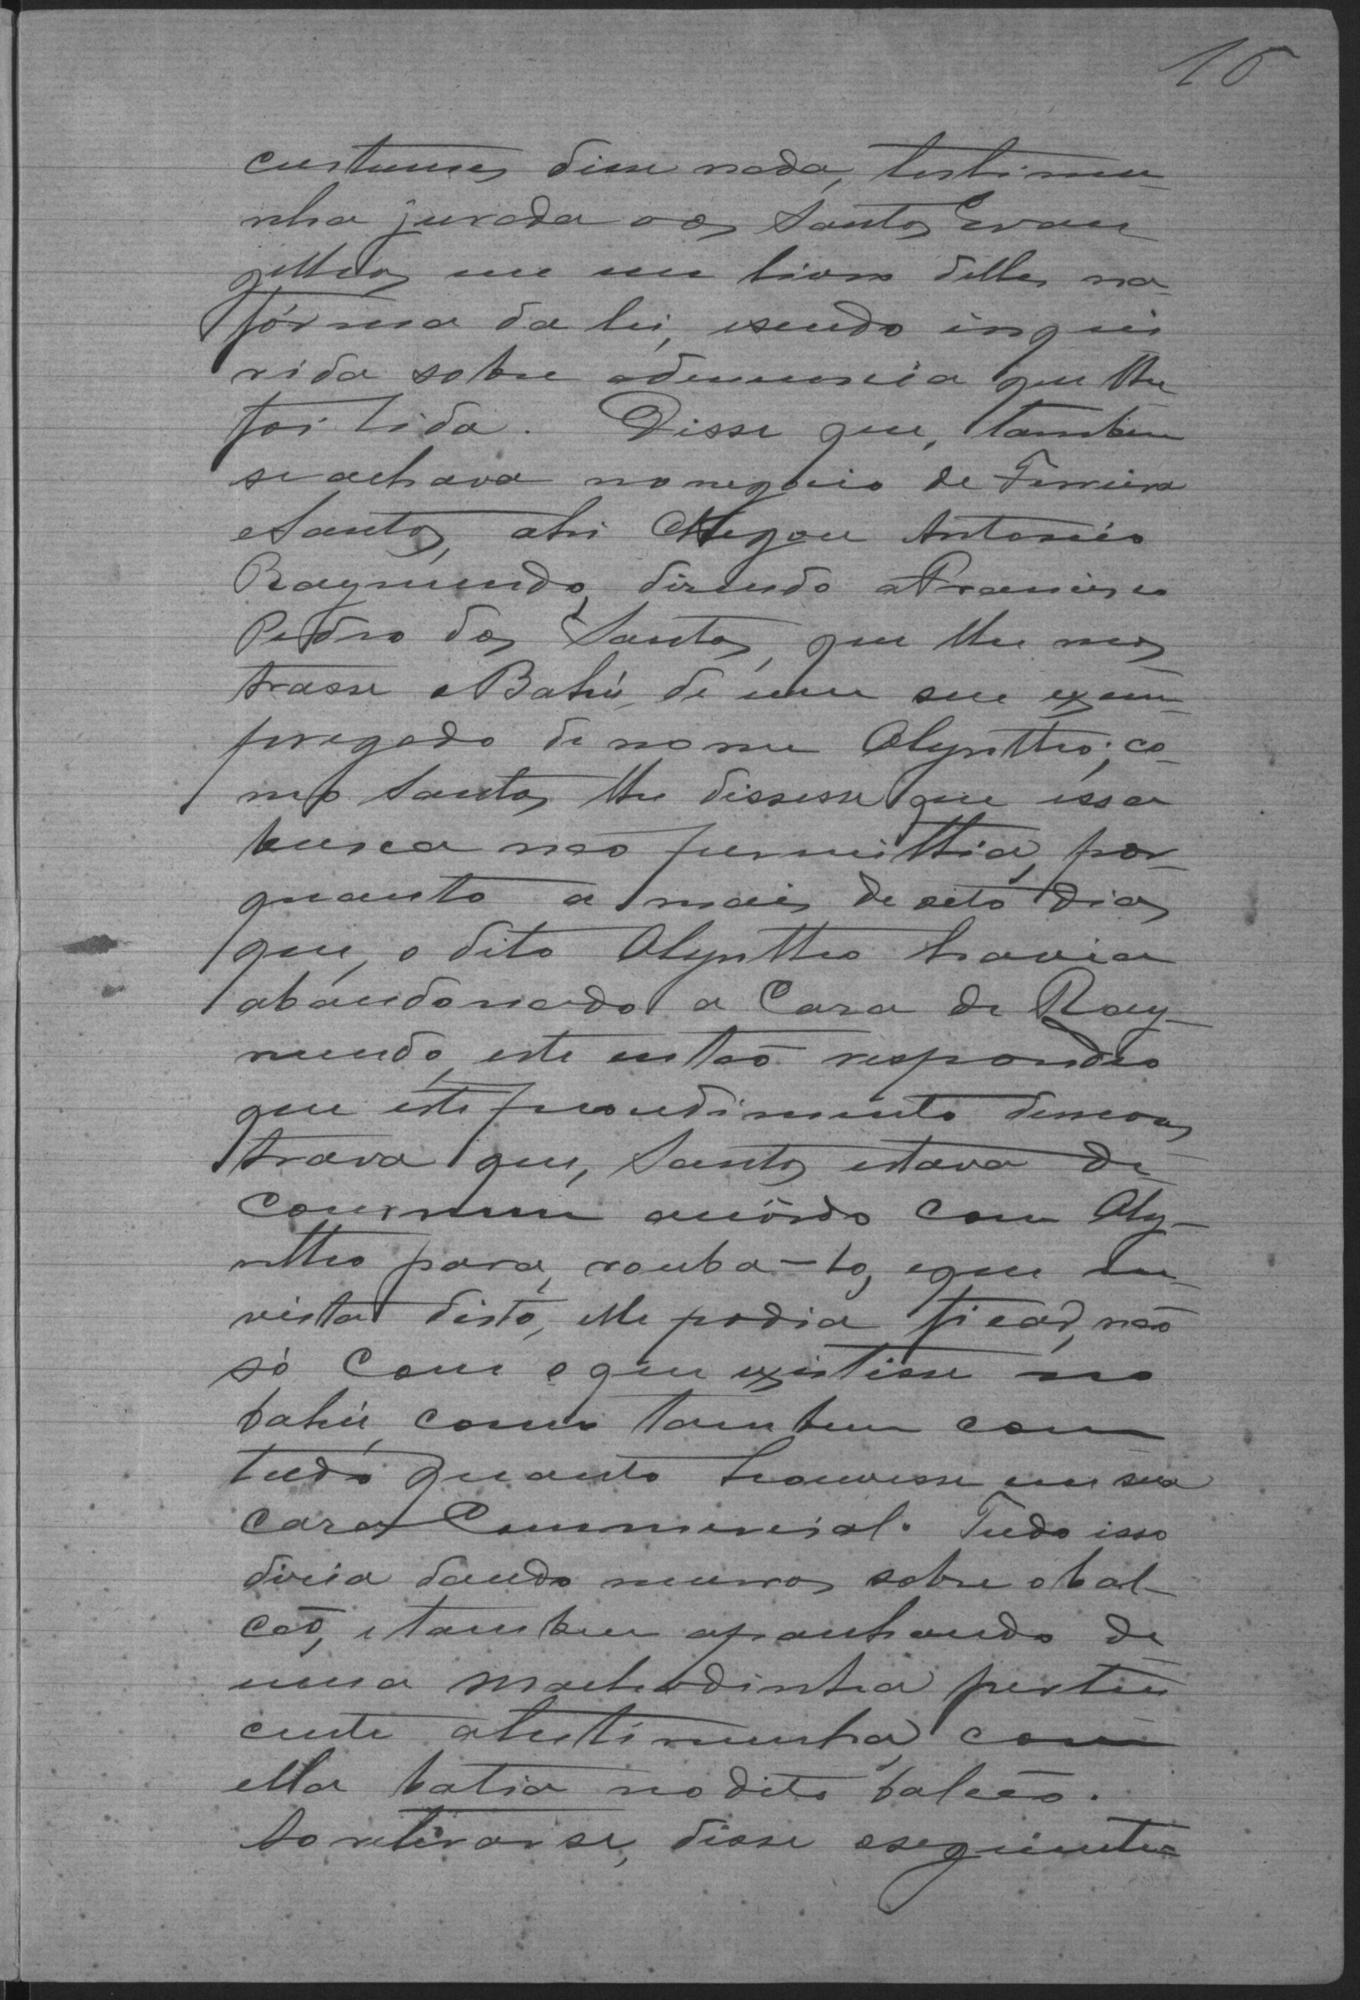 16
custumes disse nada, testimu-
nha jurada aos Santos Evan
gelhos em um livro delles na
fórma da lei, esendo inqui
rida sobre adenuncia que lhe
foi lida. Disse que, tambem
seachava nonegocio de Ferreira
eSantos, ahi chegou Antonio
Raymundo, dizendo aFrancisco
Pedro dos Santos, que lhe mos
trasse oBahú de um seu exem-
pregado de nome Olyntho; co-
mo Santos lhe dissesse que essa
busca não permitthia, por-
quanto a mais de oito dias
que, o dito Olyntho havia
abandonado a Casa de Ray-
mundo, este entaõ respondeo
que este procedimento demons
trava que, Santos estava de
commum accôrdo com Oly-
ntho para, rouba-lo, eque em
vista disto, elle podia ficar, não
só com oque existisse no
bahú, como tambem com
tudo quanto houvesse em sua
casa Commercial. Tudo isso
dizia dando murros sobre obal-
caõ, etambem apanhando de
uma machadinha perten
cente atestimunha, com
ella batia nodito balcão.
Ao retirar se, disse oseguinte=